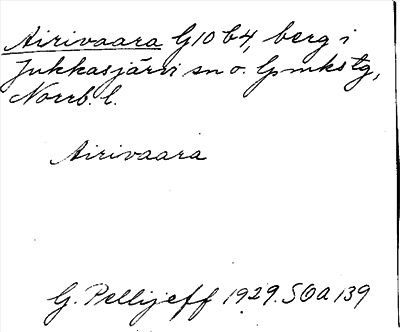 Airivaara G10 b4, berg i
Jukkasjärvi sn o. lpmkstg,
Norrb. l.
Airivaara
G. Pellijeff 1929. SOA 139